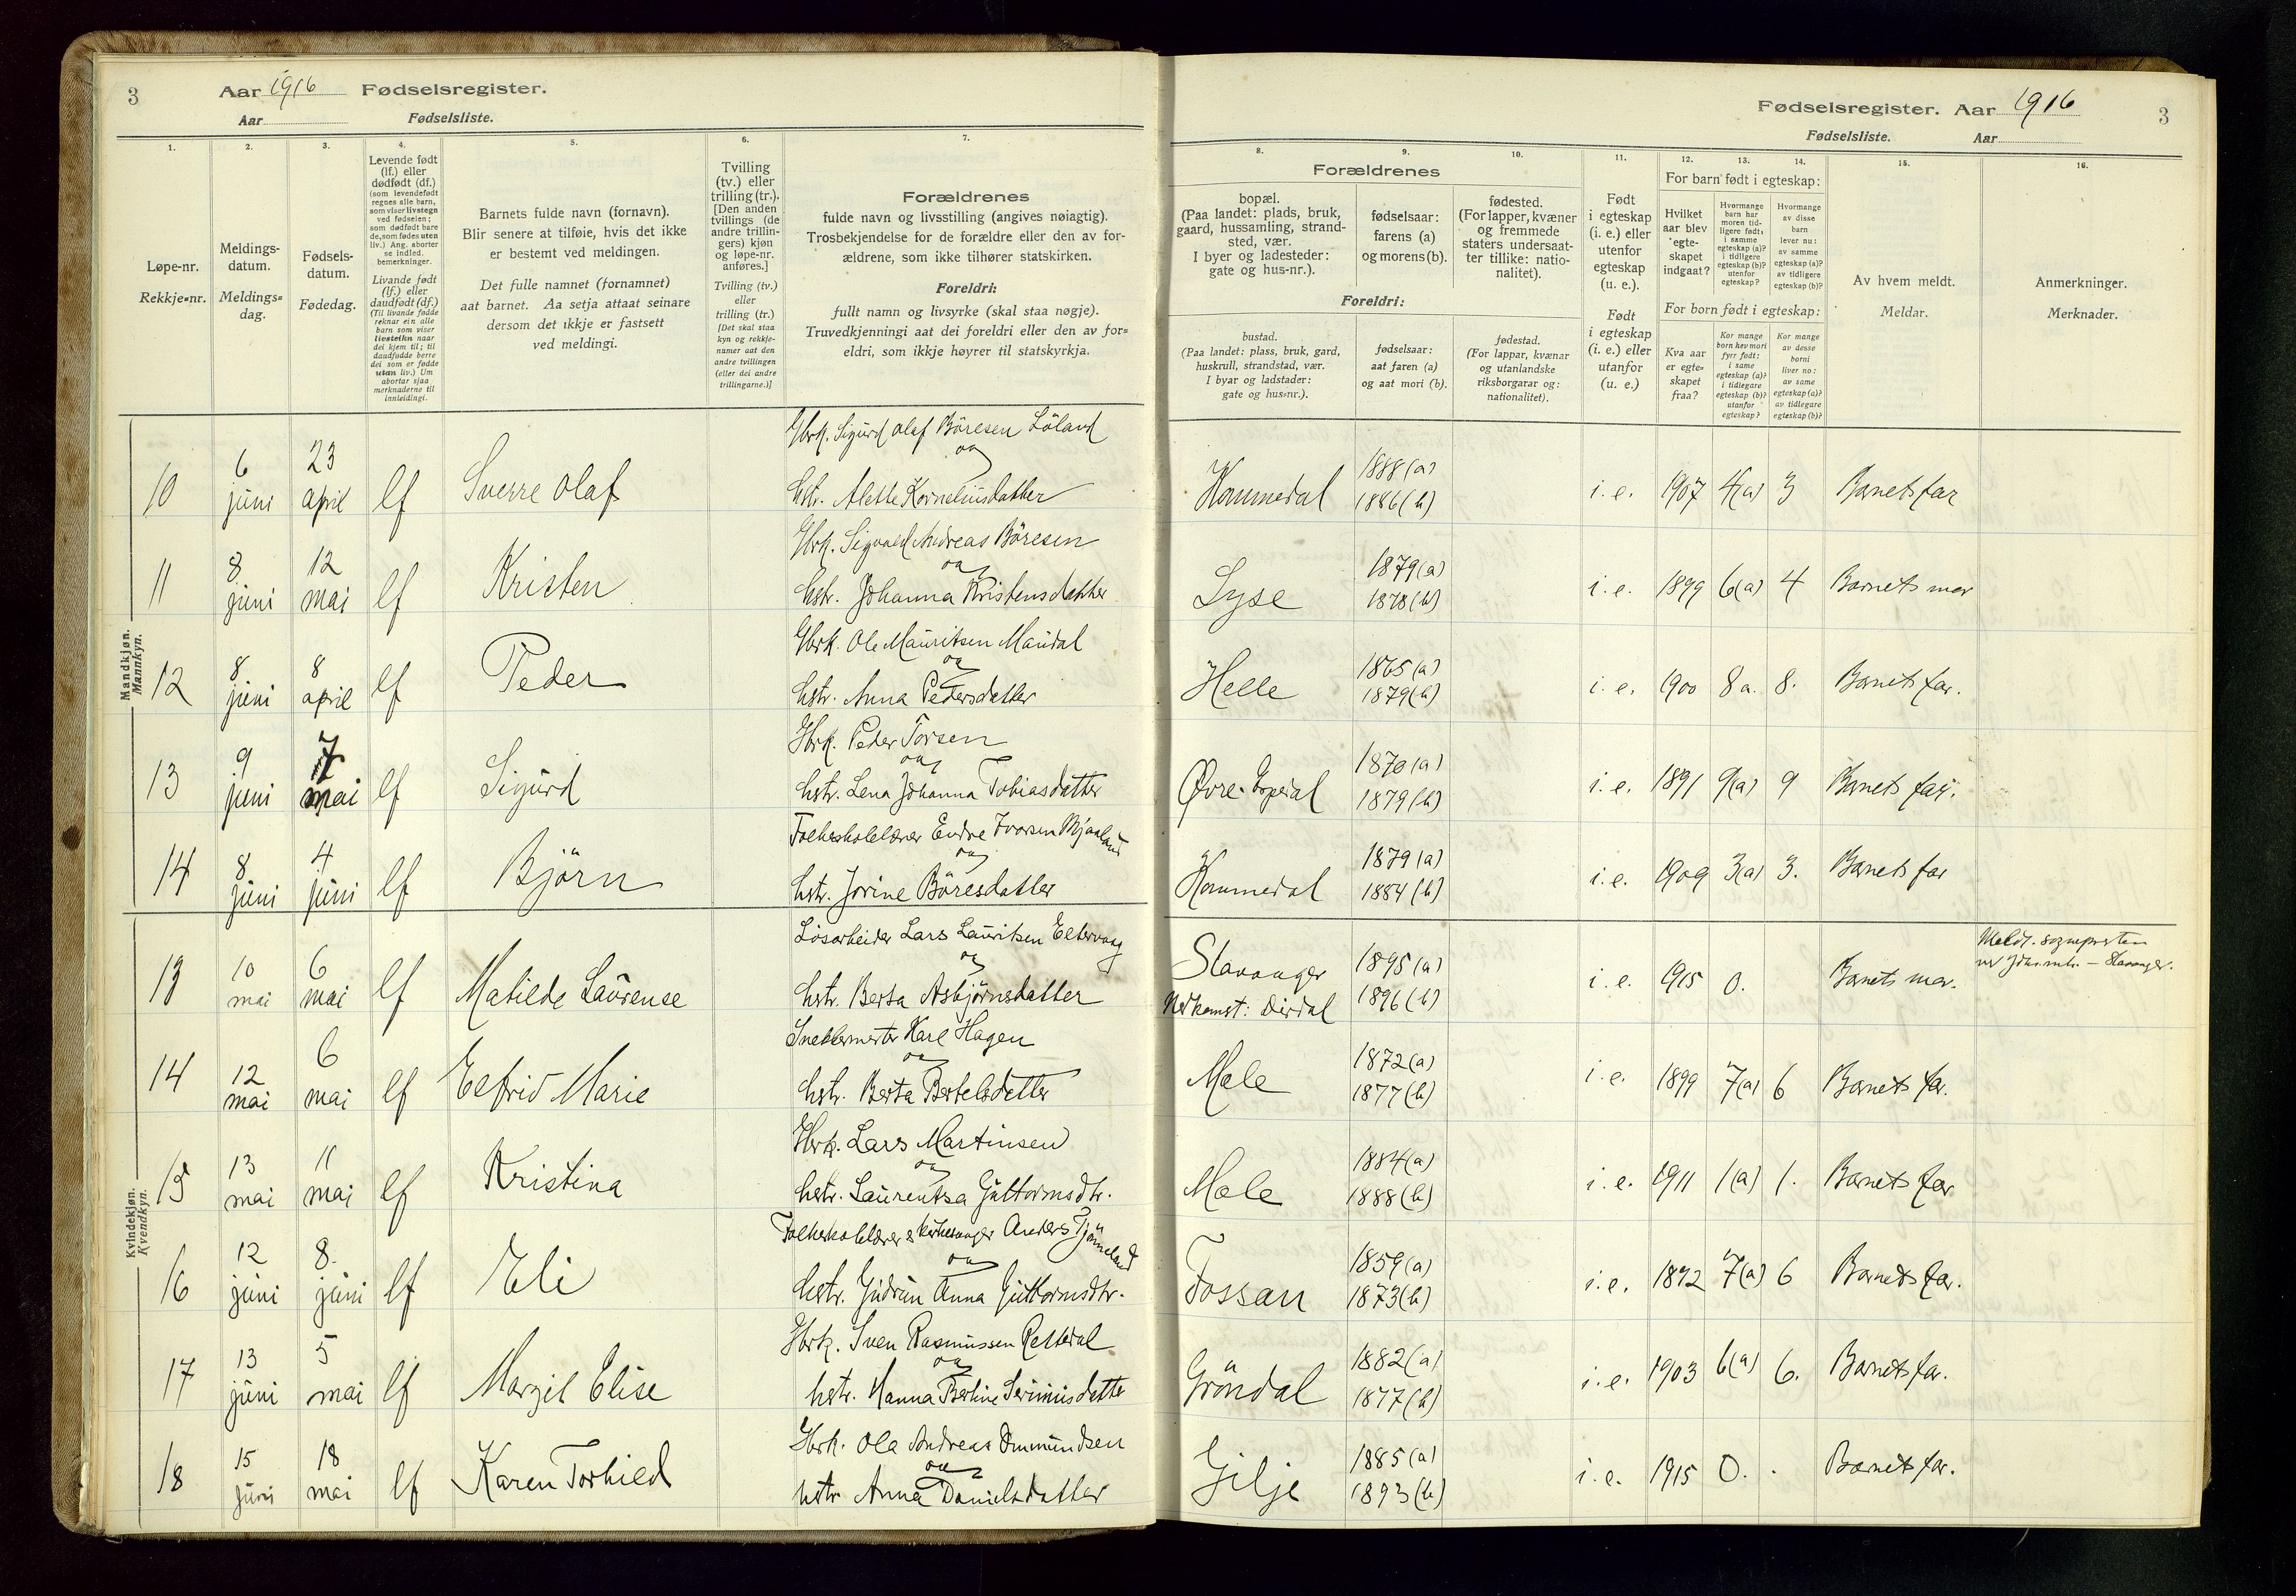 3
Aar 1916 Fødselsregister.
Aar Fødselsliste.
1.
2.
3.
4.
5.
6.
7.
Løpe-nr.
Rekkje-nr.
Meldings-
datum.
Meldings-
dag.
Fødsels-
datum.
Fødedag.
Levende født
(lf.) eller
dødfødt (df.)
(som levendefødt
regnes alle barn,
som viser livstegn
ved fødselen;
som dødfødt bare
de, som fødes uten
liv.) Ang. aborter
se indled.
bemerkninger.
Livande født
(lf.) eller
daudfødt (df.)
(Til livande fødde
reknar ein alle
barn som viser
livsteikn naar
dei kjem til; til
daudfødde berre
dei som er fødde
utan liv.) Um
abortar sjaa
merknaderne til
innleidingi.
Barnets fulde navn (fornavn).
Blir senere at tilføie, hvis det ikke
er bestemt ved meldingen.
Det fulle namnet (fornamnet)
aat barnet. Aa setja attaat seinare
dersom det ikkje er fastsett
ved meldingi.
Tvilling
(tv.) eller
trilling (tr.).
[Den anden
tvillings (de
andre trillin-
gers) kjøn
og løpe-nr.
anføres.]
Tvilling (tv.)
eller
trilling (tr.)
[Det skal staa
kyn og rekkje-
numer aat den
andre tvillingen
(eller dei andre
trillingarne.)]
Forældrenes
fulde navn og livsstilling (angives nøiagtig).
Trosbekjendelse for de forældre eller den av for-
ældrene, som ikke tilhører statskirken.
Foreldri:
fullt namn og livsyrke (skal staa nøgje).
Truvedkjenningi aat dei foreldri eller den av for-
eldri, som ikkje høyrer til statskyrkja.
Mandkjøn.
Mannkyn.
10 6 juni 23 april lf Sverre Olaf
Gbrk. Sigurd Olaf Böresen Löland
og
hstr. Alette Korneliusdatter
11 8 juni 12 mai lf Kristen
Gbrk. Sigvald Andreas Böresen
og
hstr. Johanna Kristensdatter
12 8 juni 8 april lf Peder
Gbrk. Ole Mauritsen Maudal
og
hstr. Anna Pedersdatter
13 9 juni 7 mai lf Sigurd
Gbrk. Peder Torsen
og
hstr. Lena Johanna Tobiasdatter
14 8 juni 4 juni lf Björn
Folkeskolelærer Endre Ivarsen Mjaaland
og
hstr. Jorine Böresdatter
Kvindekjøn.
Kvendkyn.
13 10 mai 6 mai lf Matilde Laurense
Lösarbeider Lars Lauritsen Eltervaag
og
hstr. Berta Asbjörnsdatter
14 12 mai 6 mai lf Elfrid Marie
Snekkermester Karl Hagen
og
hstr. Berta Bertelsdatter
15 13 mai 11 mai lf Kristina
Gbrk. Lars Martinsen
og
hstr. Laurentsa Guttormsdtr.
16 12 juni 8. juni lf Eli
Folkeskolelærer & kirkesanger Anders Tjömeland
og
hstr. Gudrun Anna Guttormsdtr.
17 13 juni 5 mai lf Margit Elise
Gbrk. Sven Rasmussen Rettedal
og
hstr. Hanna Bertine Serinusdatter
18 15 juni 18 mai lf Karen Torhild
Gbrk. Ole Andreas Ommundsen
og
hstr Anna Danielsdatter
Fødselsregister. Aar 1916 3
Fødselsliste. Aar
8.
9.
10.
11.
12.
13.
14.
15.
16.
Forældrenes
bopæl.
(Paa landet: plads, bruk,
gaard, hussamling, strand-
sted, vær.
I byer og ladesteder:
gate og hus-nr.).
fødselsaar:
farens (a)
og morens (b).
fødested.
(For lapper, kvæner
og fremmede
staters undersaat-
ter tillike: natio-
nalitet).
Foreldri:
bustad.
(Paa landet: plass, bruk, gard,
huskrull, strandstad, vær.
I byar og ladstader:
gate og hus-nr.).
fødselsaar:
aat faren (a)
og aat mori (b).
fødestad.
(For lappar, kvænar
og utanlandske
riksborgarar og:
nationalitet).
Født
i egteskap
(i. e.) eller
utenfor
egteskap
(u. e.).
Født
i egteskap
(i. e.) eller
utanfor
(u. e.)
For barn født i egteskap:
Hvilket
aar blev
egte-
skapet
indgaat?
Hvormange
barn har
moren tid-
ligere født:
i samme
egteskap (a)?
i tidligere
egteskap (b)?
utenfor
egteskap?
Hvormange
av disse
barn
lever nu:
av samme
egteskap (a)?
av tidligere
egteskap (b)?
For born født i egteskap:
Kva aar
er egte-
skapet
fraa?
Kor mange
born hev mori
fyrr født:
i same
egteskap (a)?
i tidlegare
egteskap (b)?
utanfor
egteskap?
Kor mange
av desse
borni
liver no:
av same
egteskap (a)?
av tidlegare
egteskap (b)?
Av hvem meldt.
Meldar.
Anmerkninger.
Merknader.
Kommedal 1888 (a) 1886 (b) i. e. 1907 4(a) 3 Barnets far
Lyse 1879 (a) 1878 (b) i. e. 1899 6(a) 4 Barnets mor
Helle 1865 (a) 1879 (b) i. e. 1900 8 a. 8. Barnets far.
Øvre-Espedal 1870 (a) 1879 (b) i. e. 1891 9(a) 9 Barnets far.
Kommedal 1879 (a) 1884 (b) i. e. 1909 3(a) 3. Barnets far
Stavanger
Nedkomst: Dirdal 1895 (a) 1896 (b) i. e. 1915 0. Barnets mor.
Meldt. sogneprsten
Stavanger.
Mele 1872 (a) 1877 (b) i. e. 1899 7(a) 6 Barnets far.
Mele 1884 (a) 1888 (b) i. e. 1911 1(a) 1. Barnets far
Fossan 1859 (a) 1873 (b) i. e. 1892 7(a) 6 Barnets far.
Gröndal 1882 (a) 1877 (b) i. e. 1903 6(a) 6. Barnets far.
Gilje 1885 (a) 1893 (b) i. e. 1915 0. . Barnets far.